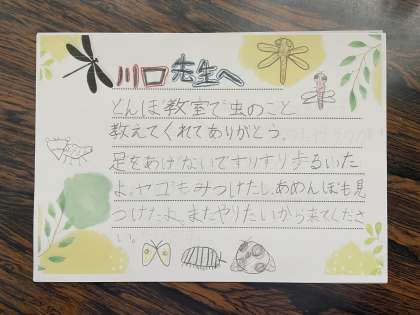 川口先生へ
とんぼ教室で虫のこと
教えてくれてありがとう。
足をあげないですりすり歩るいた
よ。ヤゴもみつけたし、あめんぼも見
つけたよ。またやりたいから来てくださ
い。